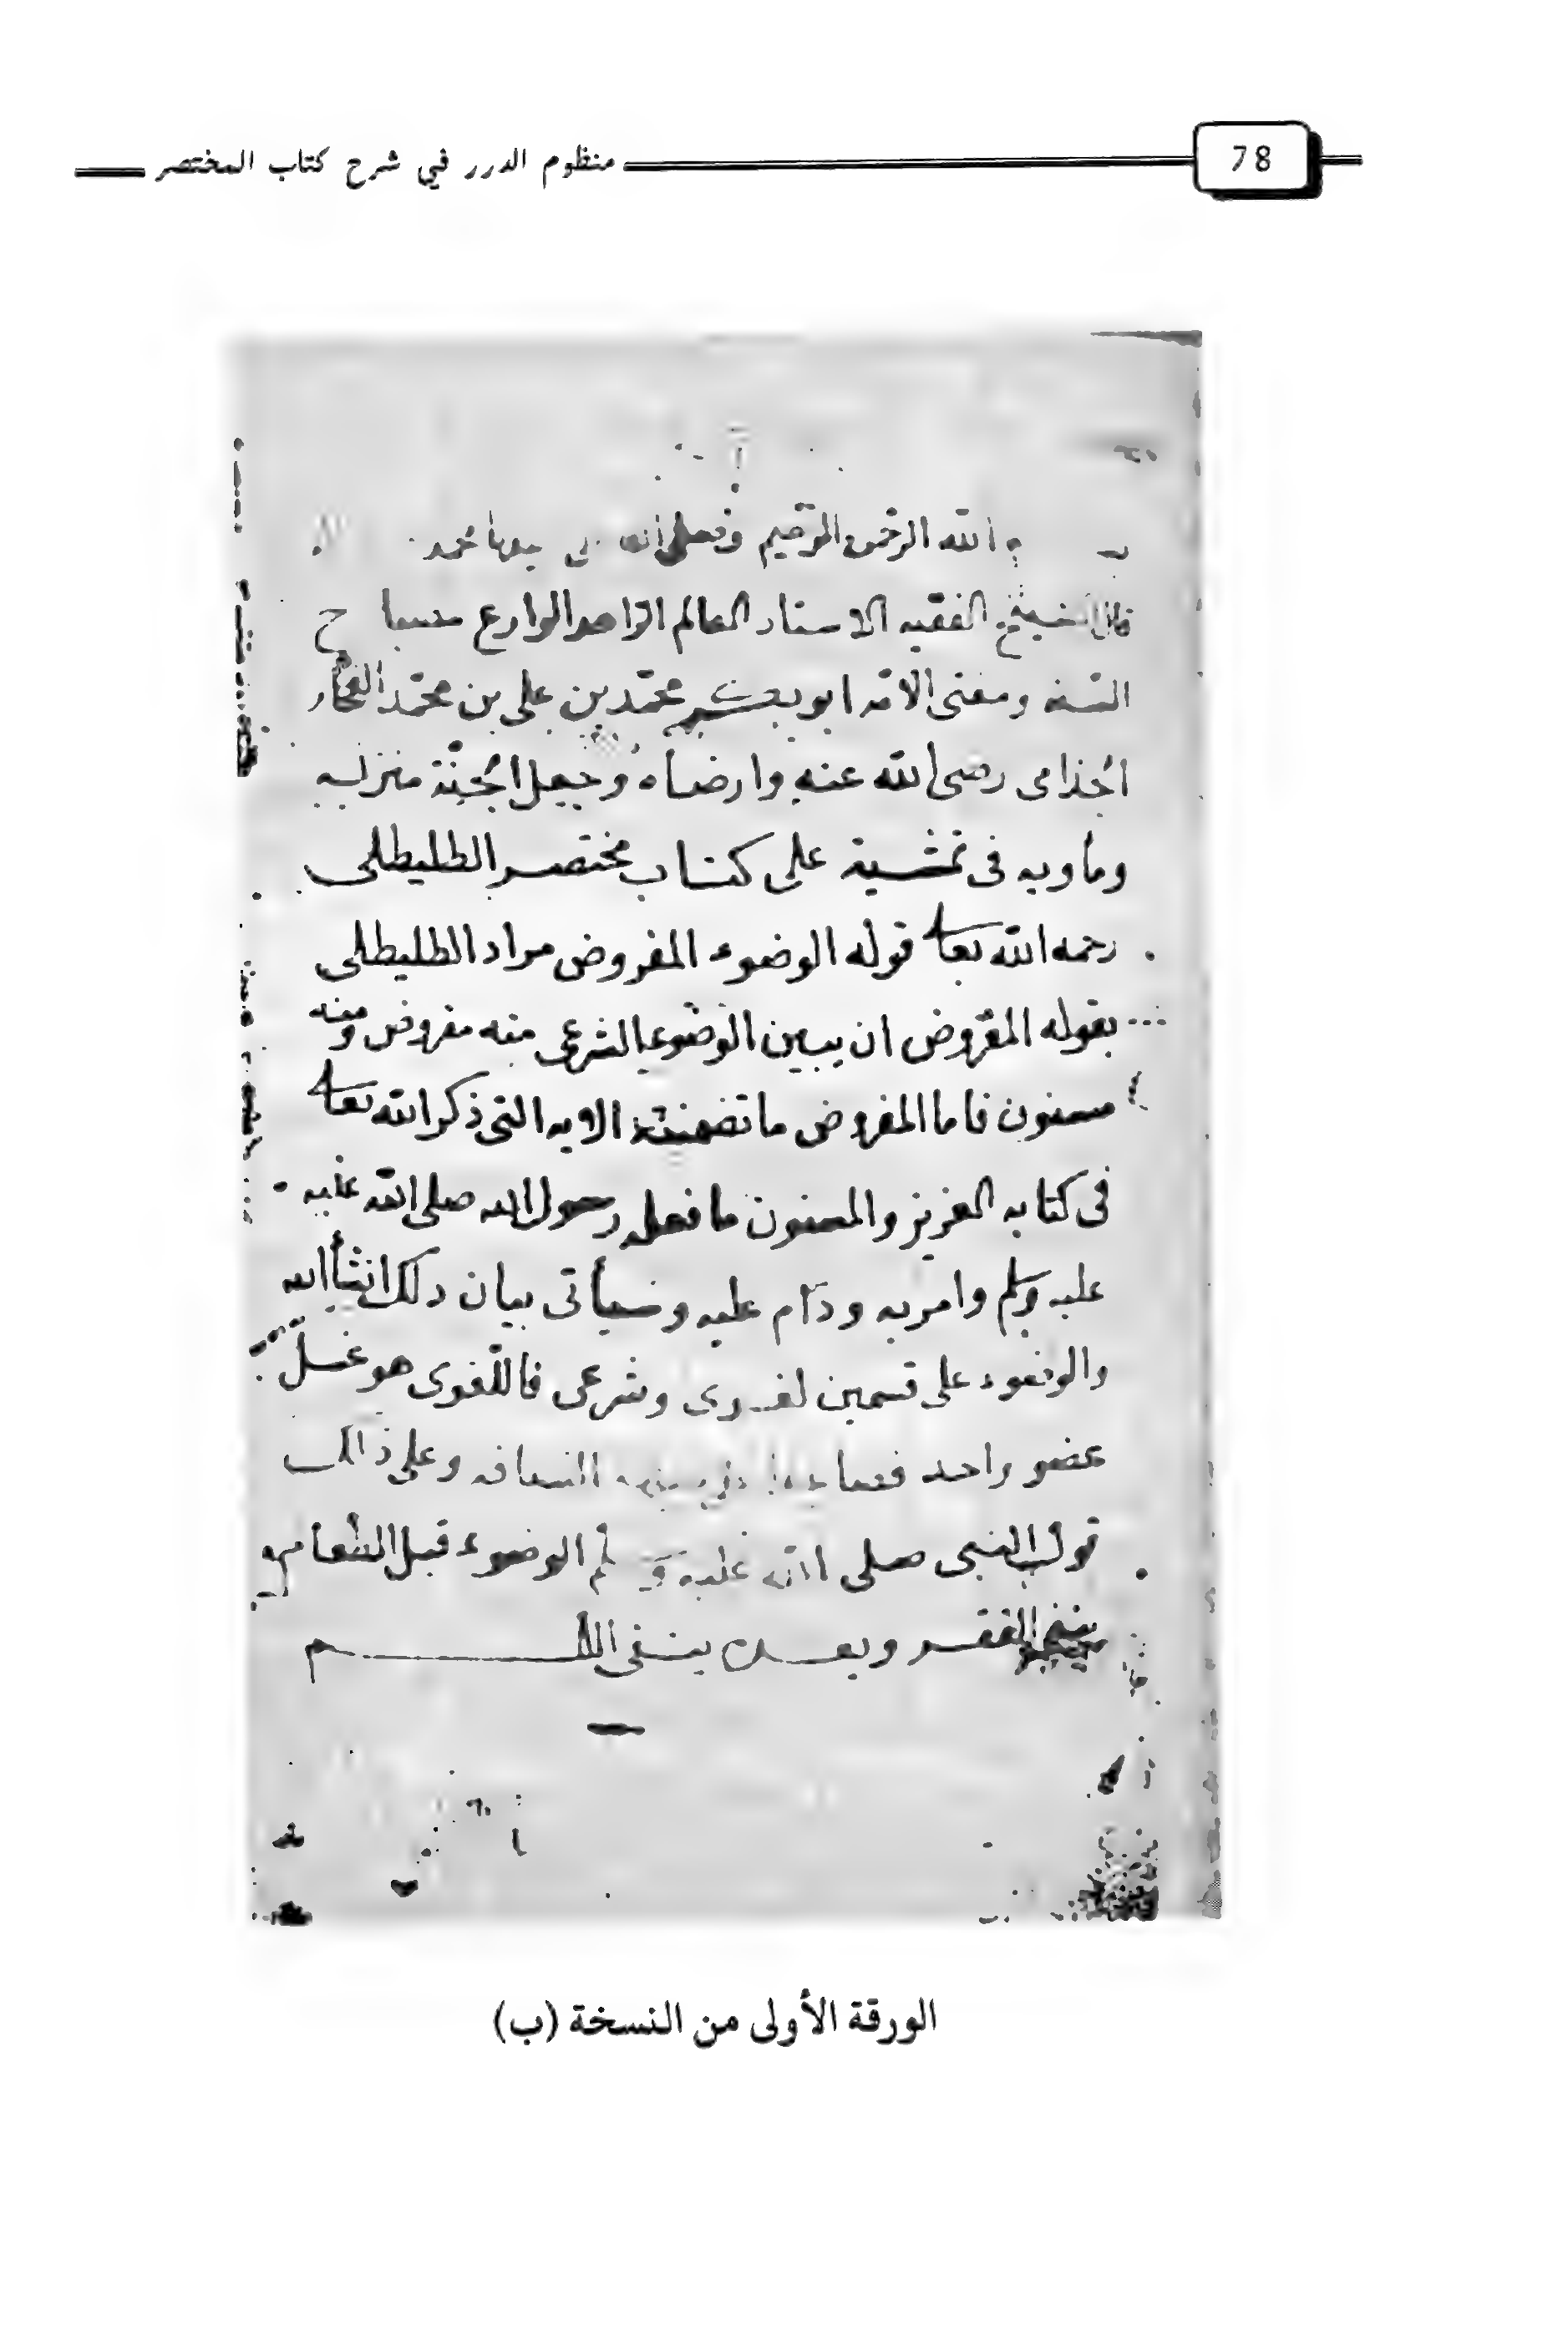 78
منظوم الدرر في شرح كتاب المختصر
الله الرحمن الرحيم وصلى الله محمد
قال الشيخ الفقيه الاستاد العالم الزاهد الوارع
السنه ومفتى الامه ابو بكر محمد بن على بن محمد الفخار
الجذامى رضى الله عنه وارضاه وجعل الجنة منزله
وماويه فى تمشية على كتاب مختصر الطليطلى
رحمه الله تعا قوله الوضوء المفروض مراد الطليطلى
بقوله المفروض ان يبين الوضوء الشرعى منه مفروض ومنه
مسنون فاما المفروض ما تضمنته الايه التى ذكر الله تعا
فى كتابه العزيز والمسنون ما فعله رسول الله صلى الله عليه
عليه وسلم وامر به ودام عليه وسيأتى بيان دلك انشأ الله
والوضوء على قسمين لغوى وشرعى فاللغوى هو غسل
عضو واحد فما النضافه وعلى ذالك
قول النبى صلى الله عليه وسلم الوضوء قبل الطعام
ينفى الفقر وبعده ينفى اللمم
الورقة الأولى من النسخة (ب)